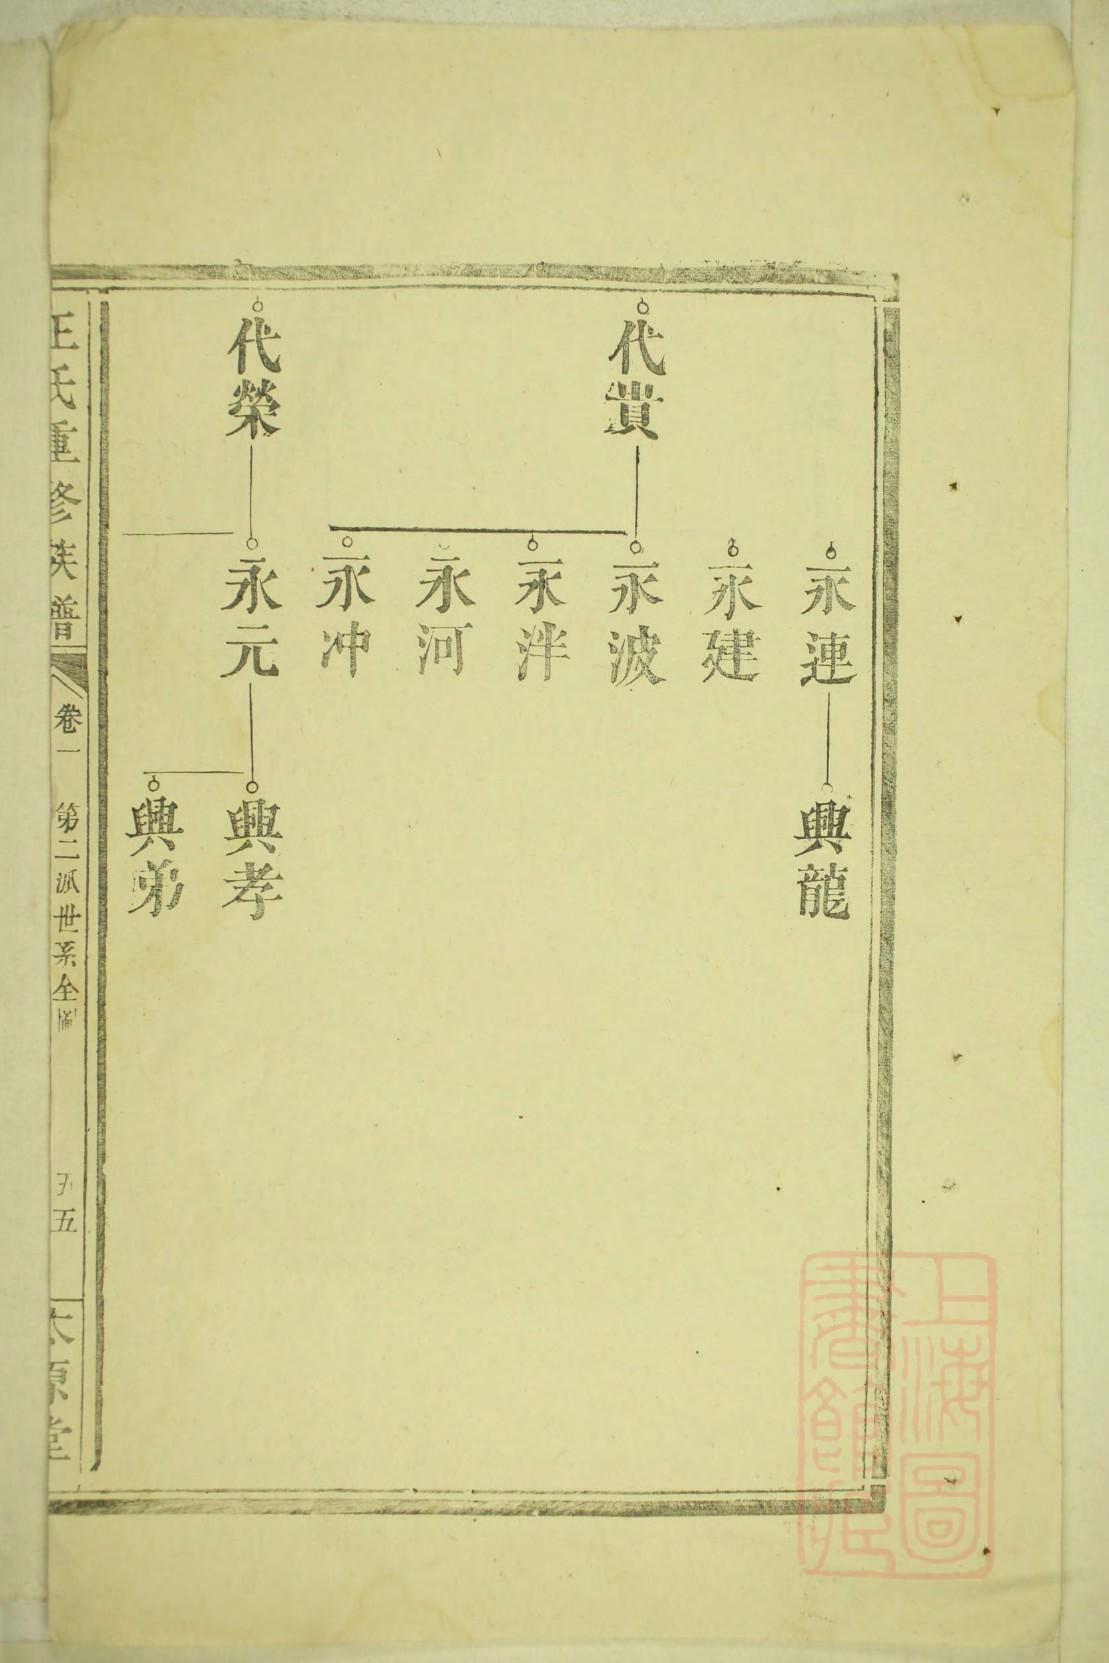 永連
興龍
永建
代貴
永波
永泮
永河
永冲
代榮
永元
興孝
興弟
王氏重修族譜
卷一
第二派世系全圖
五
太原堂
上海圖
書館藏